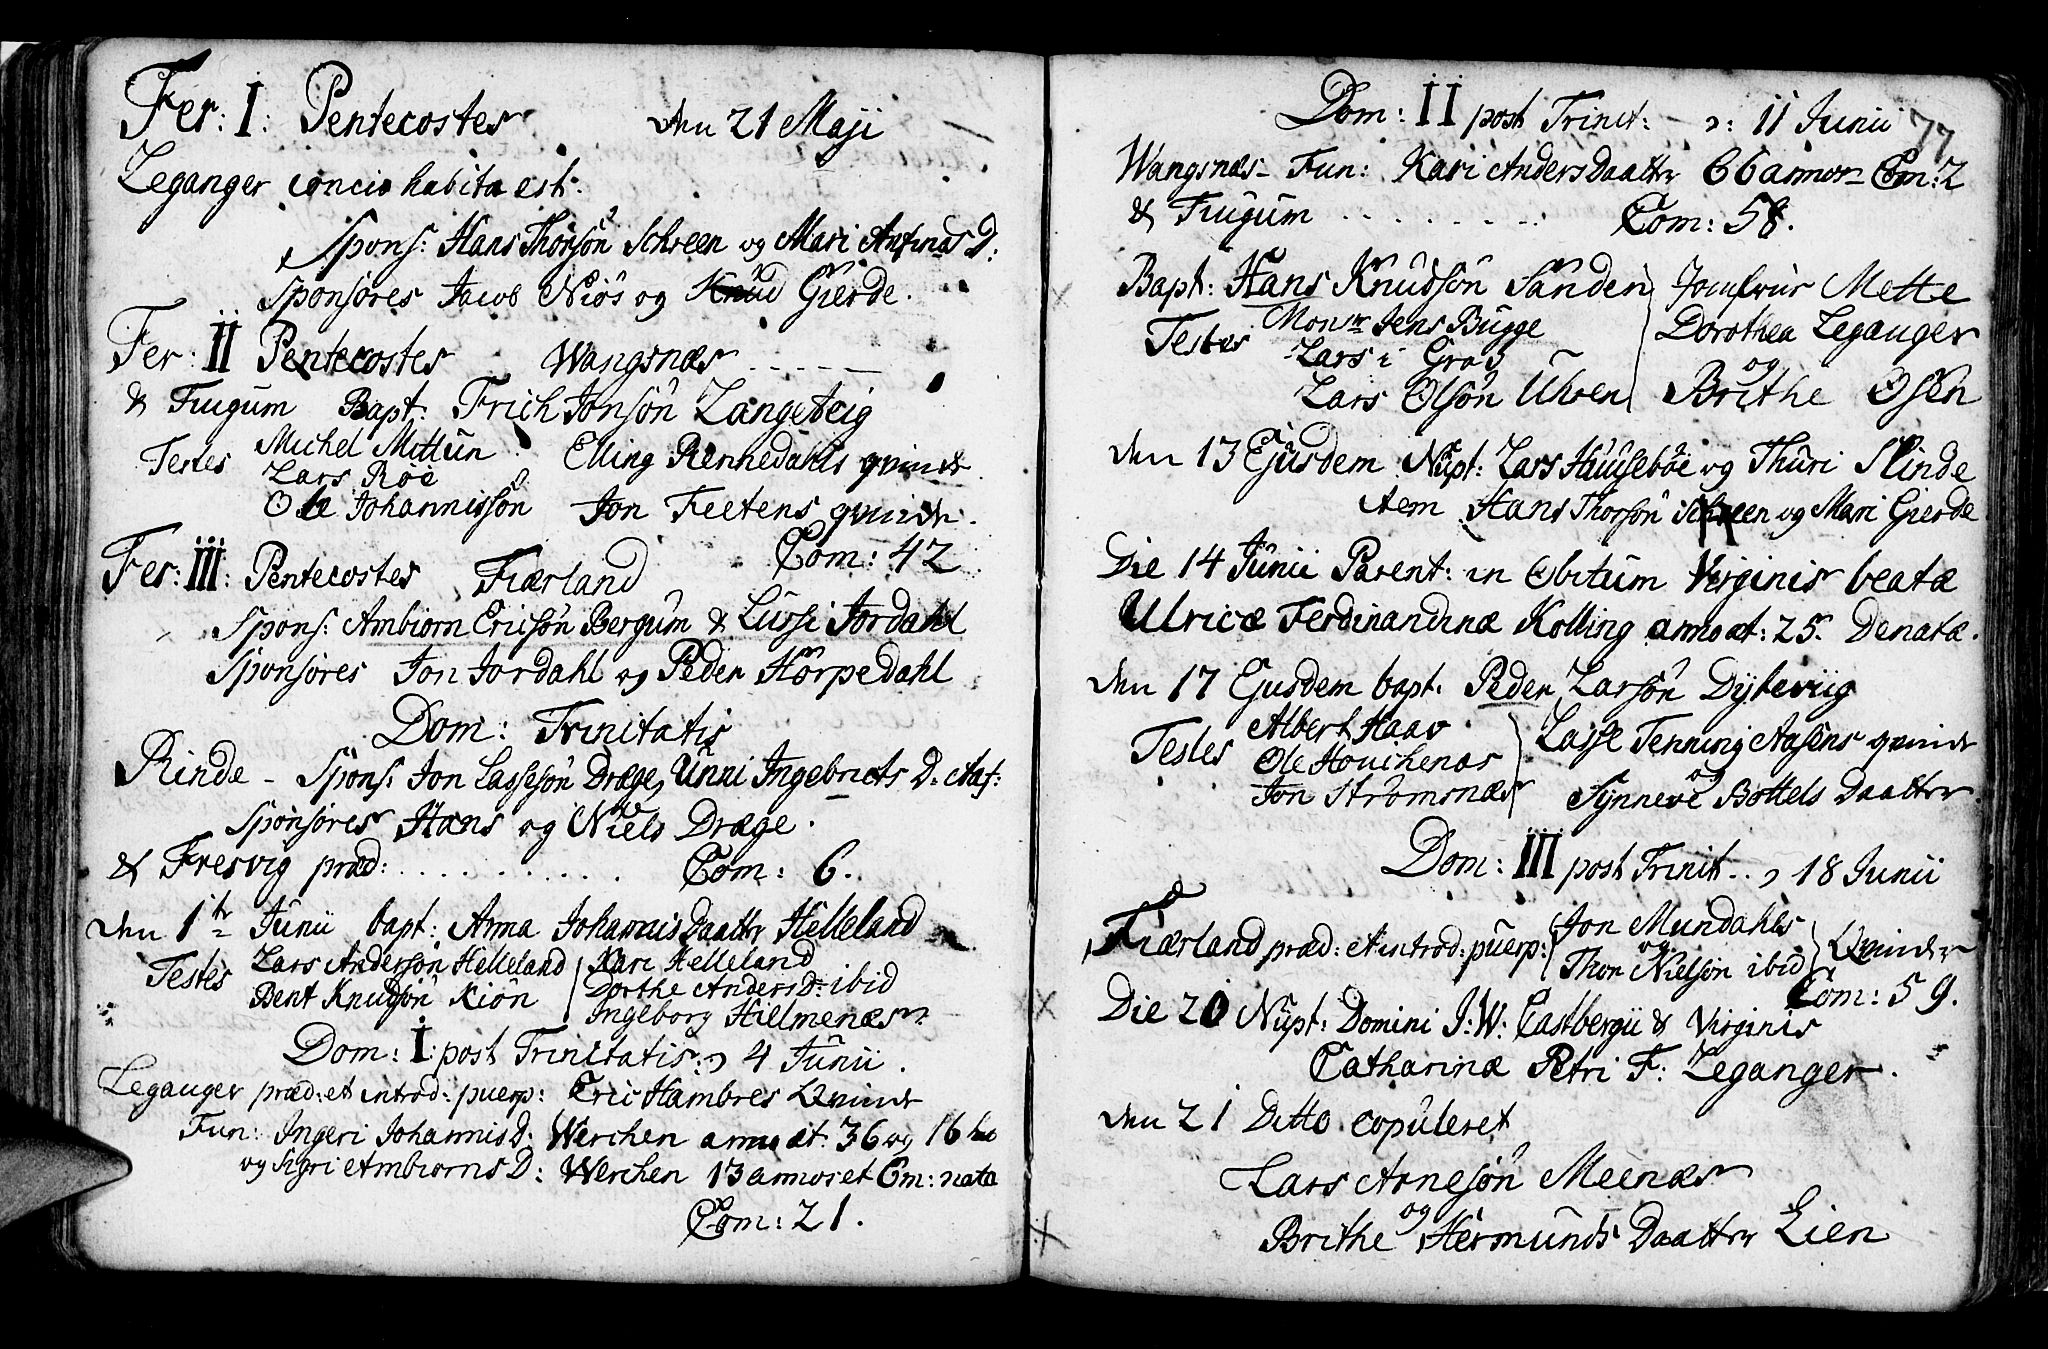 Fer: I: Pentecostes den 21 Maji
Leganger concio habita est.
Spons: Hans Thorsön Schreen og Mari Antinas D:
Sponsores Jacob Niös og Knud Gierde.
Fer: II Pentecostes Wangsnæs
& Tiugum Bapt: Frich Jonsön Langeteig
Testes Michel Mittun Elling Rennedahls qvinde
Lars Röe
Ole Johannissön Jon Feetens qvinde.
Com: 42
Fer: III: Pentecostes Fiærland
Spons: Ambiorn Ericsön Bergum & Lussi Jordahl
Sponsores Jon Jordahl og Peder Horpedahl
Dom: Trinitatis
Rinde - Spons: Jon Lassesön Dræge, Unni Ingebricts D:
Sponsores Hans og Niels Dræge.
& Fresvig præd: . . . . . . . . . . . Com: 6.
den 1te Junii bapt: Anna Johannis Daatter Helleland
Testes Lars Andersön Helleland Kari Helleland
Bent Knudsön Kiön Dorthe Anders D: ibid
Ingeborg Hielmenæs.
Dom: I: post Trinitatis: d: 4 Junii.
Leganger præd: et introd: puerp: Eric Hambres Qvinde
Fun: Ingeri Johannis D: Werchen anno æt: 36 og 16
og Sigri Ambiorns D: Werchen 13 annor et 6 m: nata
Com: 21.
Dom: II post Trinit: d: 11 Junii 77
Wangsnæs - Fun: Kari Anders Daatter 66 annor Com: 2
& Tiugum . . . . . . . . Com: 58.
Bapt: Hans Knudsön Sanden Jomfrue Mette
Testes Monsr Jens Bugge Dorothea Leganger
Lars i Grov og
Lars Olsön Uhren Brithe Osen
den 13 Ejusdem Nupt: Lars Huuseböe og Thuri Slinde
item Hans Thorsön Schreen og Mari Gierde
Die 14 Junii Parent: in Obitum Virginis beatæ
Ulricæ Ferdinandinæ Kolling anno æt: 25. Denatæ.
den 17 Ejusdem bapt: Peder Larsön Dylevüg
Testes Albert Haav Lasse Tenning Aasens qvinde
Ole Houchenæs og
Jon Stromsnæs Synneve Bottels Daatter.
Dom: III post Trinit.. d 18 Junii
Fiærland præd: et introd: puerp: Jon Mundahls og Thor Nielsön ibid Qvinder
Com: 59.
Die 20 Nupt: Domini J: W: Castbergii & Virginis
Catharinæ Petri F: Leganger.
den 21 Ditto copuleret
Lars Arnesön Meenæs
og
Brithe Hermunds Daatter Lien